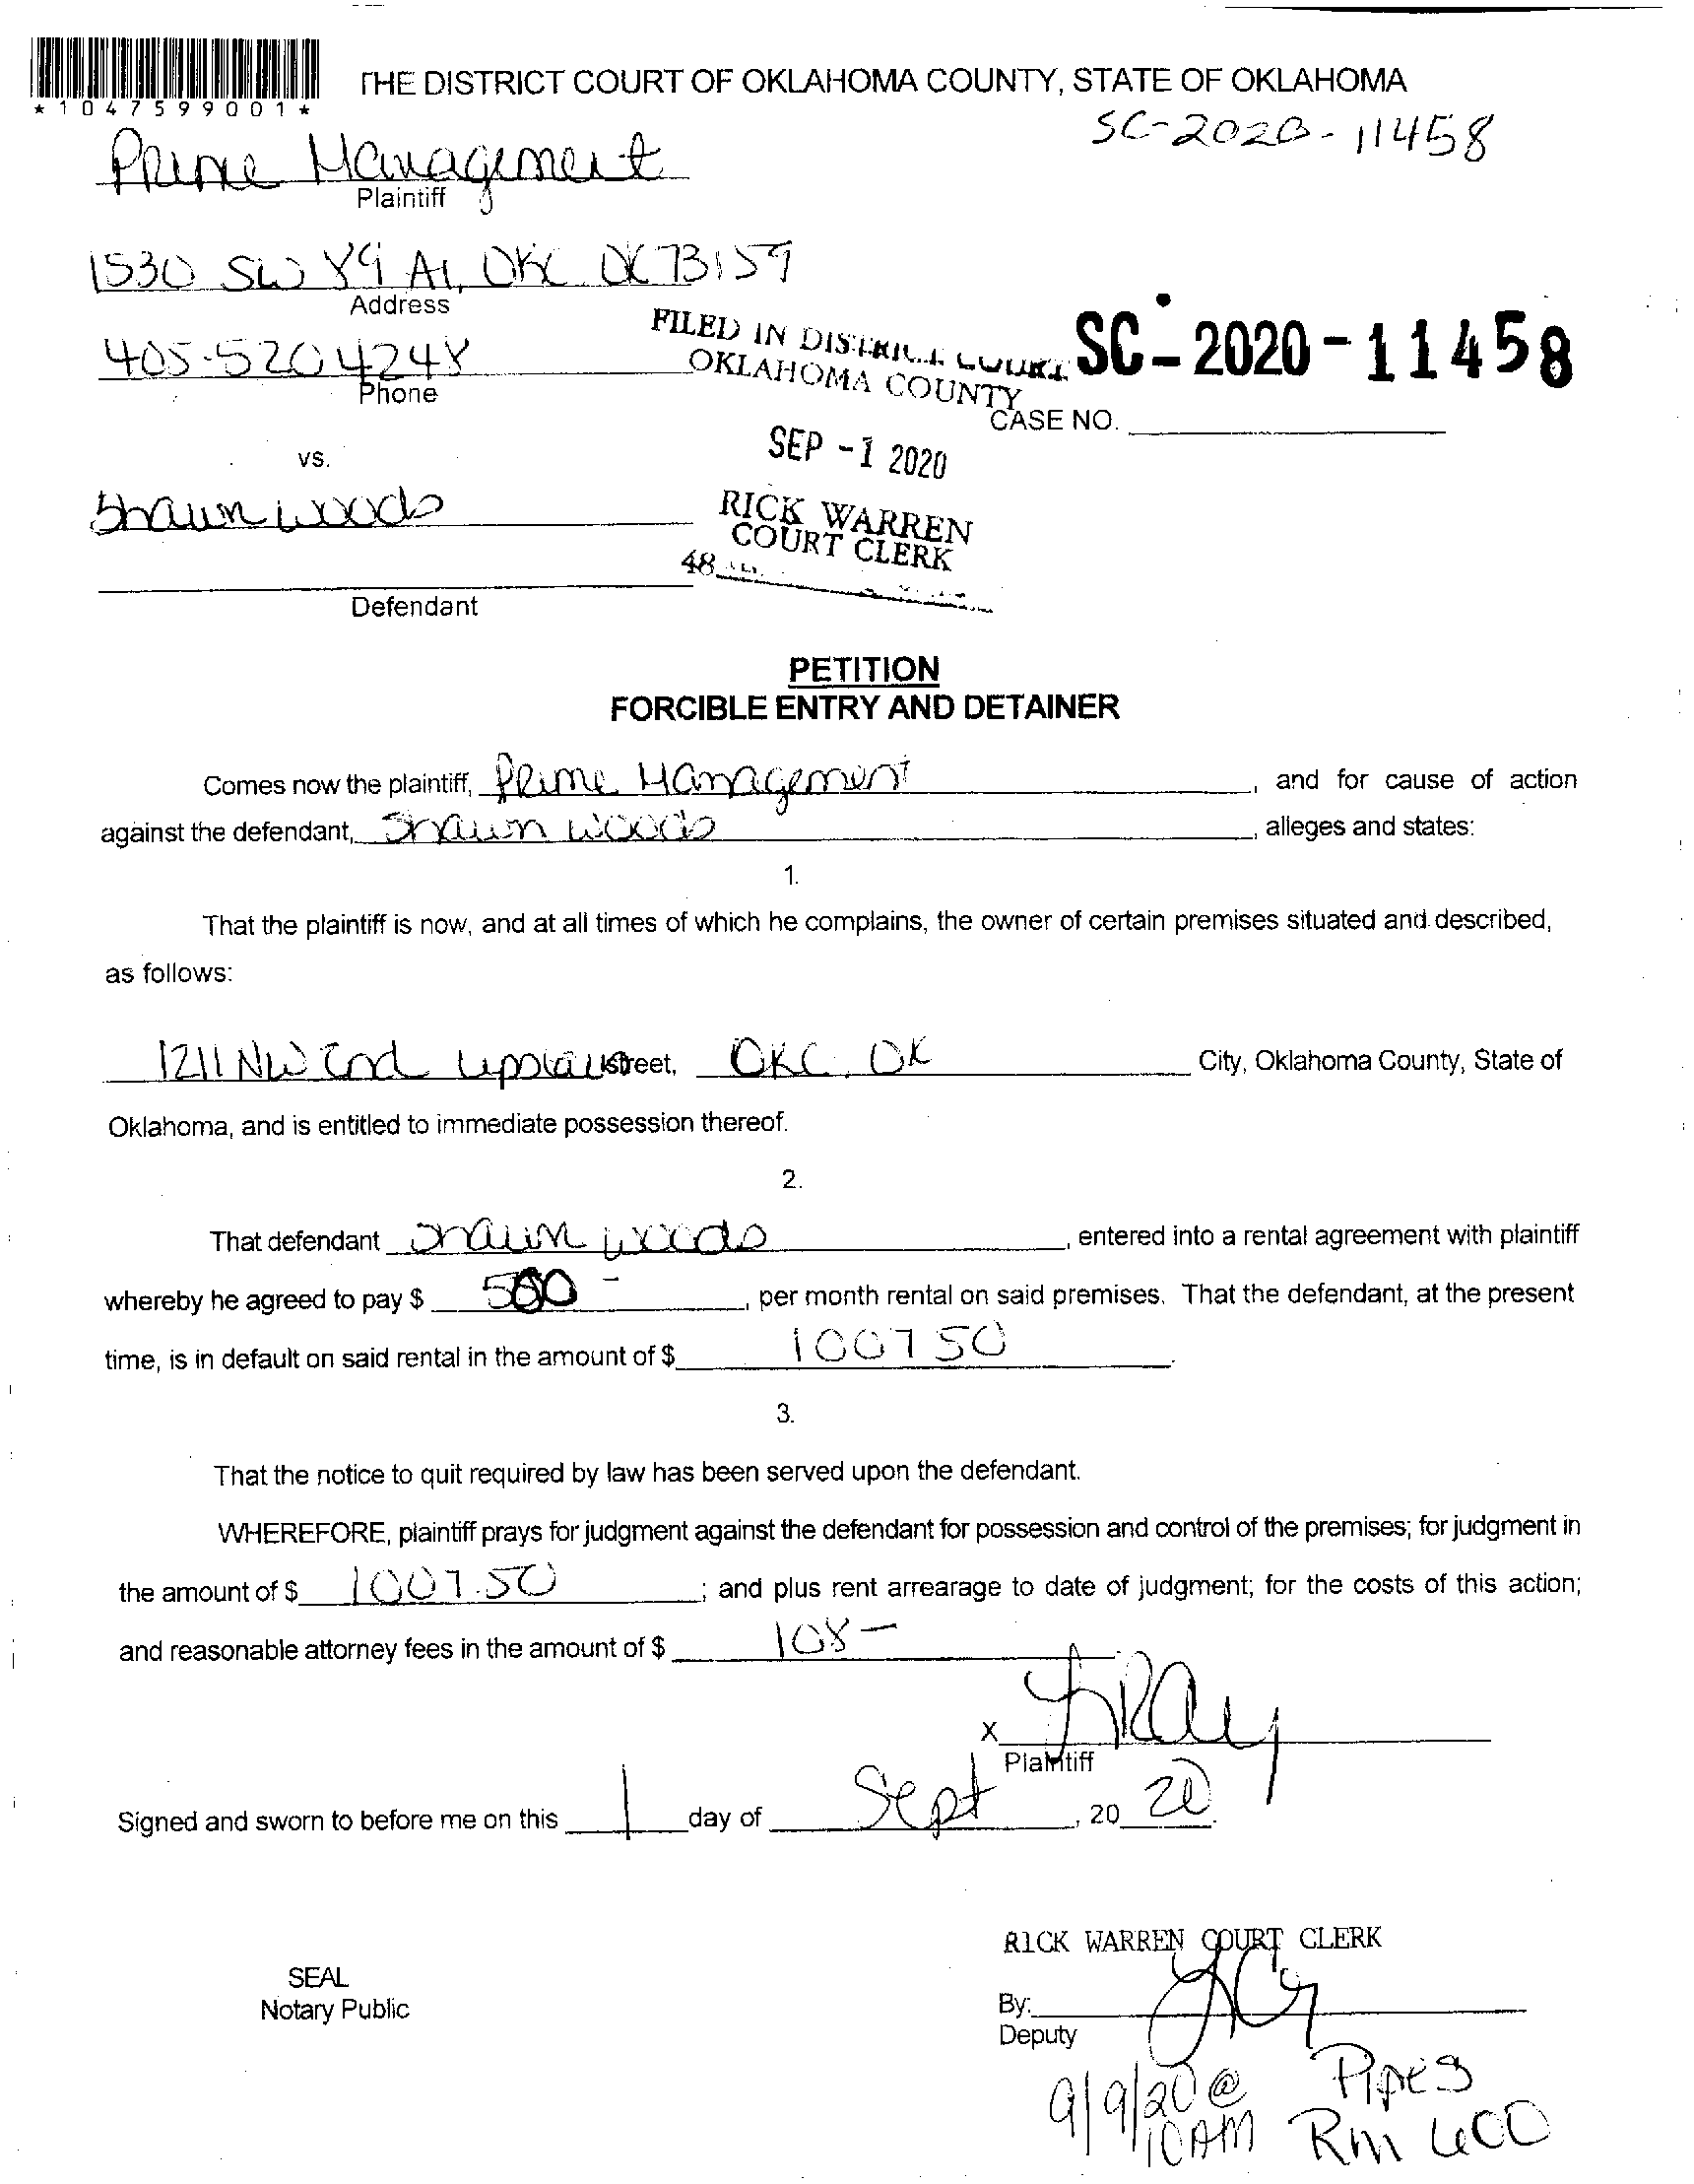 *1047599001*
THE DISTRICT COURT OF OKLAHOMA COUNTY, STATE OF OKLAHOMA
SC-2020-11458
Prime Management
Plaintiff
1530 SW 89 OKC OK 73159
Address
FILED IN DISTRICT COURT
OKLAHOMA COUNTY
SC-2020-11458
405-520 4248
Phone
CASE NO.
SEP -1 2020
vs.
Shaun Woods
RICK WARREN
COURT CLERK
48
Defendant
PETITION
FORCIBLE ENTRY AND DETAINER
Comes now the plaintiff, Prime Management, and for cause of action
against the defendant, Shaun Woods, alleges and states:
1.
That the plaintiff is now, and at all times of which he complains, the owner of certain premises situated and described,
as follows:
1211 NW 2nd street, OKC, OK City, Oklahoma County, State of
Oklahoma, and is entitled to immediate possession thereof.
2.
That defendant Shaun Woods, entered into a rental agreement with plaintiff
whereby he agreed to pay $ 500 -, per month rental on said premises. That the defendant, at the present
time, is in default on said rental in the amount of $ 1007 50.
3.
That the notice to quit required by law has been served upon the defendant.
WHEREFORE, plaintiff prays for judgment against the defendant for possession and control of the premises; for judgment in
the amount of $ 1007.50; and plus rent arrearage to date of judgment; for the costs of this action;
and reasonable attorney fees in the amount of $ 108-
X
Plaintiff
Signed and sworn to before me on this 1 day of Sept, 20 20.
RICK WARREN COURT CLERK
SEAL
Notary Public
By:
Deputy
9/9/20 @ Pipes
10AM Rm 400